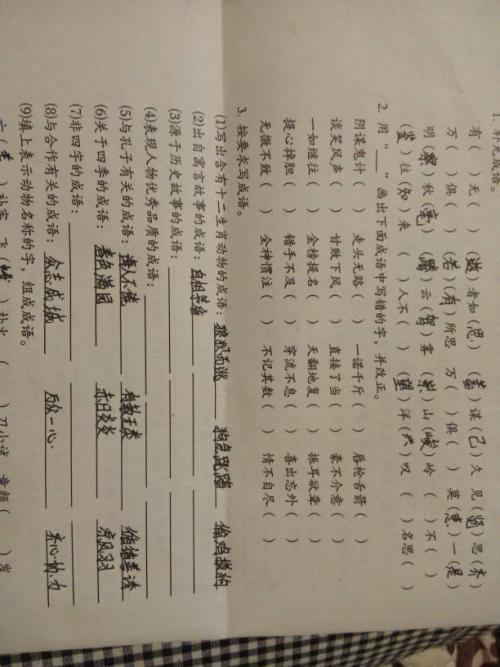 有( )无( ) (逝)者如( ) (蓄)谋(已)久 见(贤)思(齐)
万( )俱( ) (若)(有)所思 万( )俱( ) 莫(衷)一(是)
明(察)秋(毫) (腾)云(驾)雾 (崇)山(峻)岭 ( )不( )
(鉴)往(知)来 ( )人不( ) (望)洋(兴)叹 ( )名思( )
2. 用“___”画出下面成语中写错的字,并改正。
阴谋鬼计( ) 走头无路( ) 一诺千斤( ) 唇枪舌箭( )
谈笑风声( ) 甘败下风( ) 直接了当( ) 豪不介意( )
一如继往( ) 金榜提名( ) 天翻地复( ) 振耳欲聋( )
提心掉胆( ) 错手不及( ) 穿流不息( ) 喜出忘外( )
无微不致( ) 全神惯注( ) 不记其数( ) 情不自尽( )
3. 按要求写成语。
(1)写出含有十二生肖动物的成语: 狗急跳墙 偷鸡摸狗
(2)出自寓言故事的成语:自相矛盾
(3)源于历史故事的成语:
(4)表现人物优秀品质的成语:
(5)与孔子有关的成语:诲人不倦 有教无类 循循善诱
(6)关于四季的成语:春色满园 赤日炎炎
(7)非四字的成语:
(8)与合作有关的成语:众志成城 万众一心 齐心协力
(9)填上表示动物名称的字,组成成语。